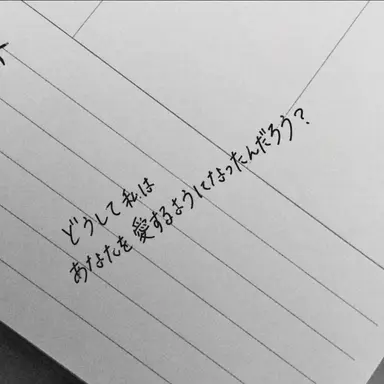 どうして私は
あなたを愛するようになったんだろう?